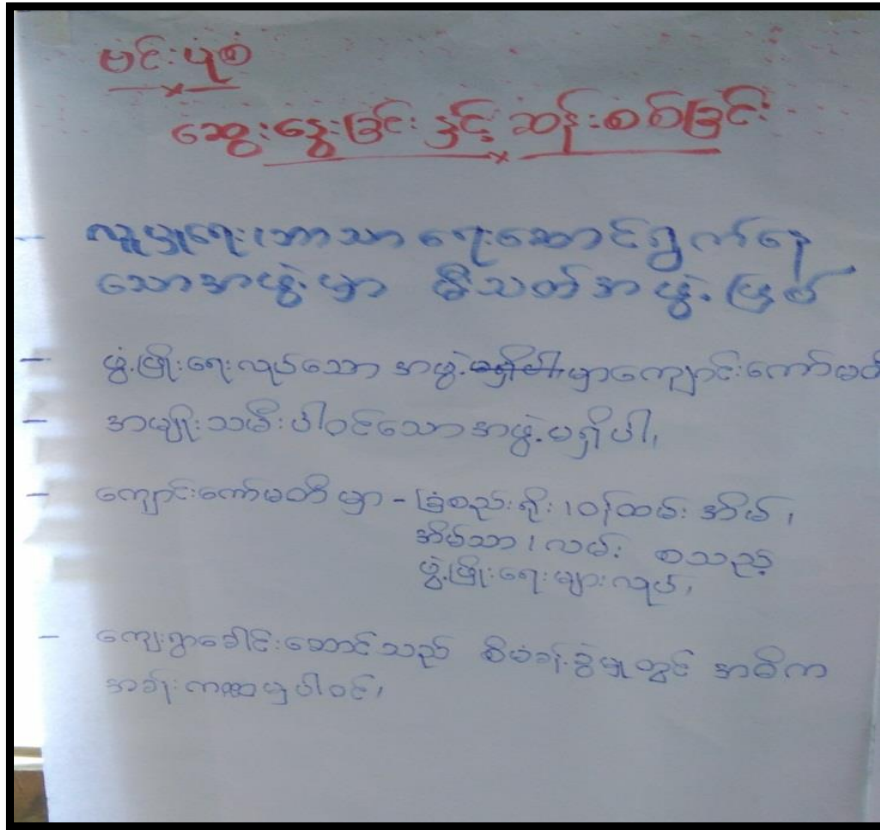 ဗင်းပုံစံ
ဆွေးနွေးခြင်း နှင့် ဆန်းစစ်ခြင်း
- လူမှုရေး၊ ဘာသာ ရေးဆောင်ရွက်နေ
သောအဖွဲ့မှာ မိသတ်အဖွဲ့ ဖြစ်
- ဖွံ့ဖြိုးရေးလုပ်သော အဖွဲ့ မရှိပါ၊ မှာကျောင်းကော်မတီ
- အမျိုးသမီးပါဝင်သောအဖွဲ့မရှိပါ၊
- ကျောင်းကော်မတီ မှာ - ခြံစည်းရိုး၊ ဝန်ထမ်း အိမ်၊
အိမ်သာ၊ လမ်း စသည့်
ဖွံ့ဖြိုးရေးများလုပ်၊
- ကျေးရွာခေါင်းဆောင်သည် စီမံခန့်ခွဲမှုတွင် အဓိက
အခန်းကဏ္ဍမှပါဝင်၊